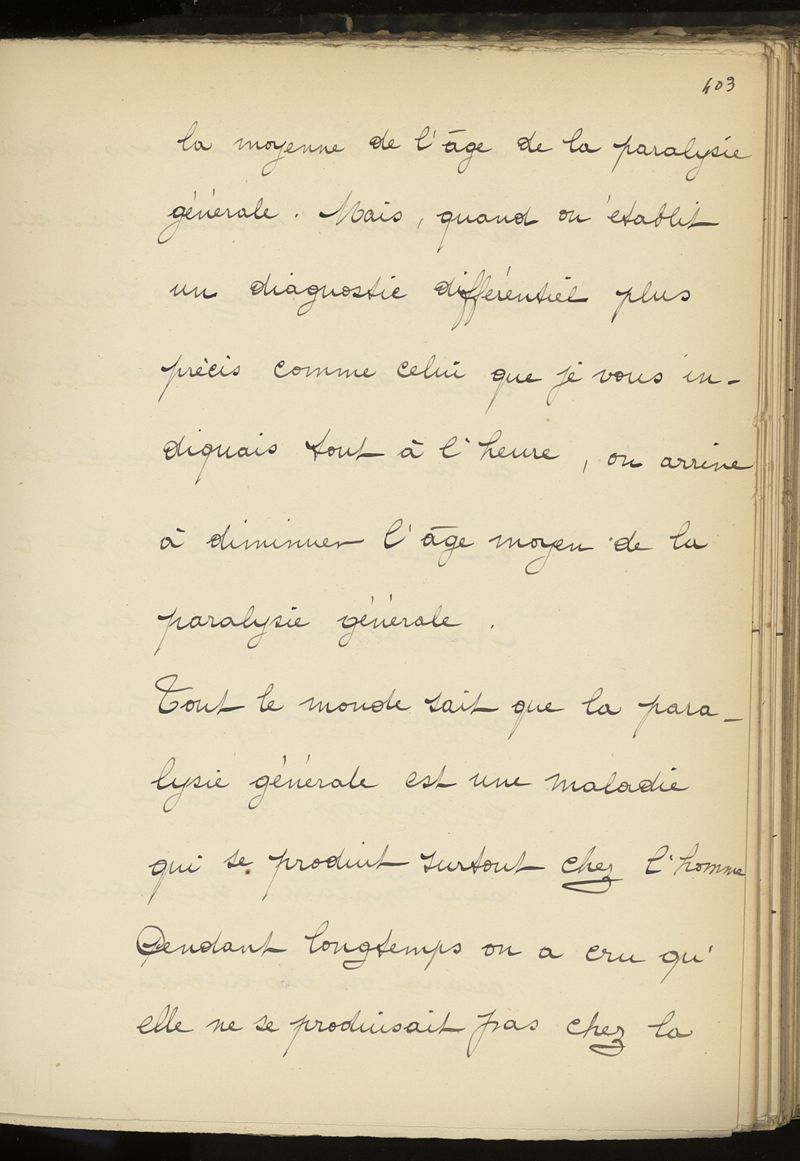 403
la moyenne de l'âge de la paralysie
générale. Mais, quand on établit
un diagnostic différentiel plus
précis comme celui que je vous in-
diquais tout à l'heure, on arrive
à diminuer l'âge moyen de la
paralysie générale.
Tout le monde sait que la para-
lysie générale est une maladie
qui se produit surtout chez l'homme
Pendant longtemps on a cru qu'
elle ne se produisait pas chez la